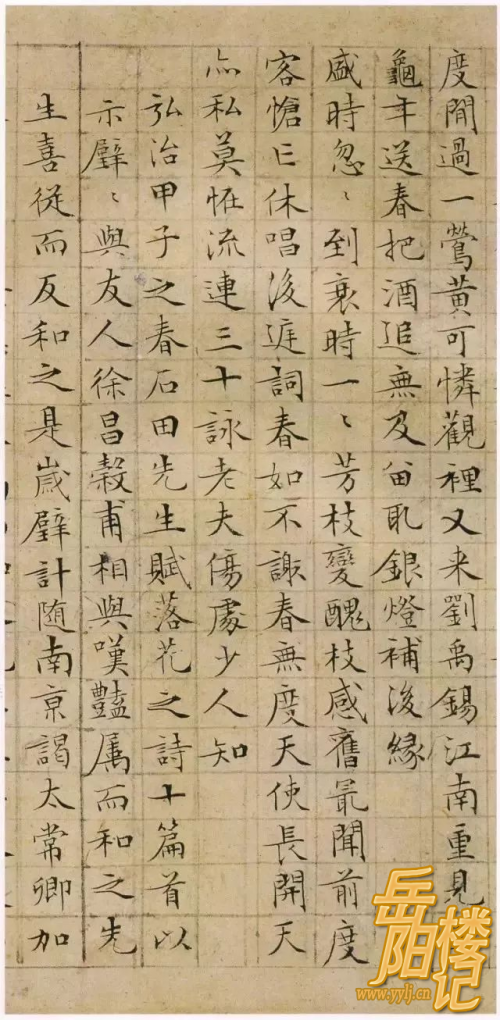 度閒過一鶯黃可憐觀裡又来劉禹錫江南重見
龜年送春把酒追無及畱取銀燈補後緣
盛時忽〻到衰時一〻芳枝變醜枝感舊最聞前度
客愴亡休唱後庭詞春如不謝春無度天使長開天
亦私莫怪流連三十詠老夫傷處少人知
弘治甲子之春石田先生賦落花之詩十篇首以
示璧〻與友人徐昌穀甫相與嘆豔属而和之先
生喜從而反和之是歲璧計随南京謁太常卿加
岳阳楼记
www.yylj.cn